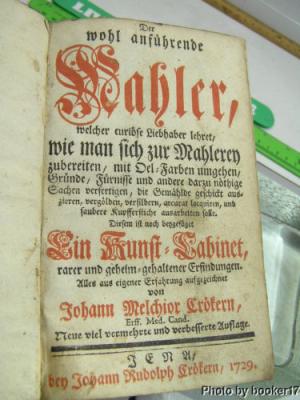 Der
wohl anführende
Mahler,
welcher curiöse Liebhaber lehret,
wie man sich zur Mahlerey
zubereiten, mit Oel-Farben umgehen,
Gründe, Fürnisse und andere darzu nöthige
Sachen verfertigen, die Gemählde geschickt aus-
zieren, vergölden, versilbern, accurat lacquiren, und
saubere Kupfferstiche ausarbeiten solle.
Diesem ist noch beygefüget
Ein Kunst-Cabinet,
rarer und geheim-gehaltener Erfindungen.
Alles aus eigener Erfahrung aufgezeichnet
von
Johann Melchior Crökern,
Erff. Med. Cand.
Neue viel vermehrte und verbesserte Auflage.
JENA,
bey Johann Rudolph Crökern, 1729.
Photo by booker17